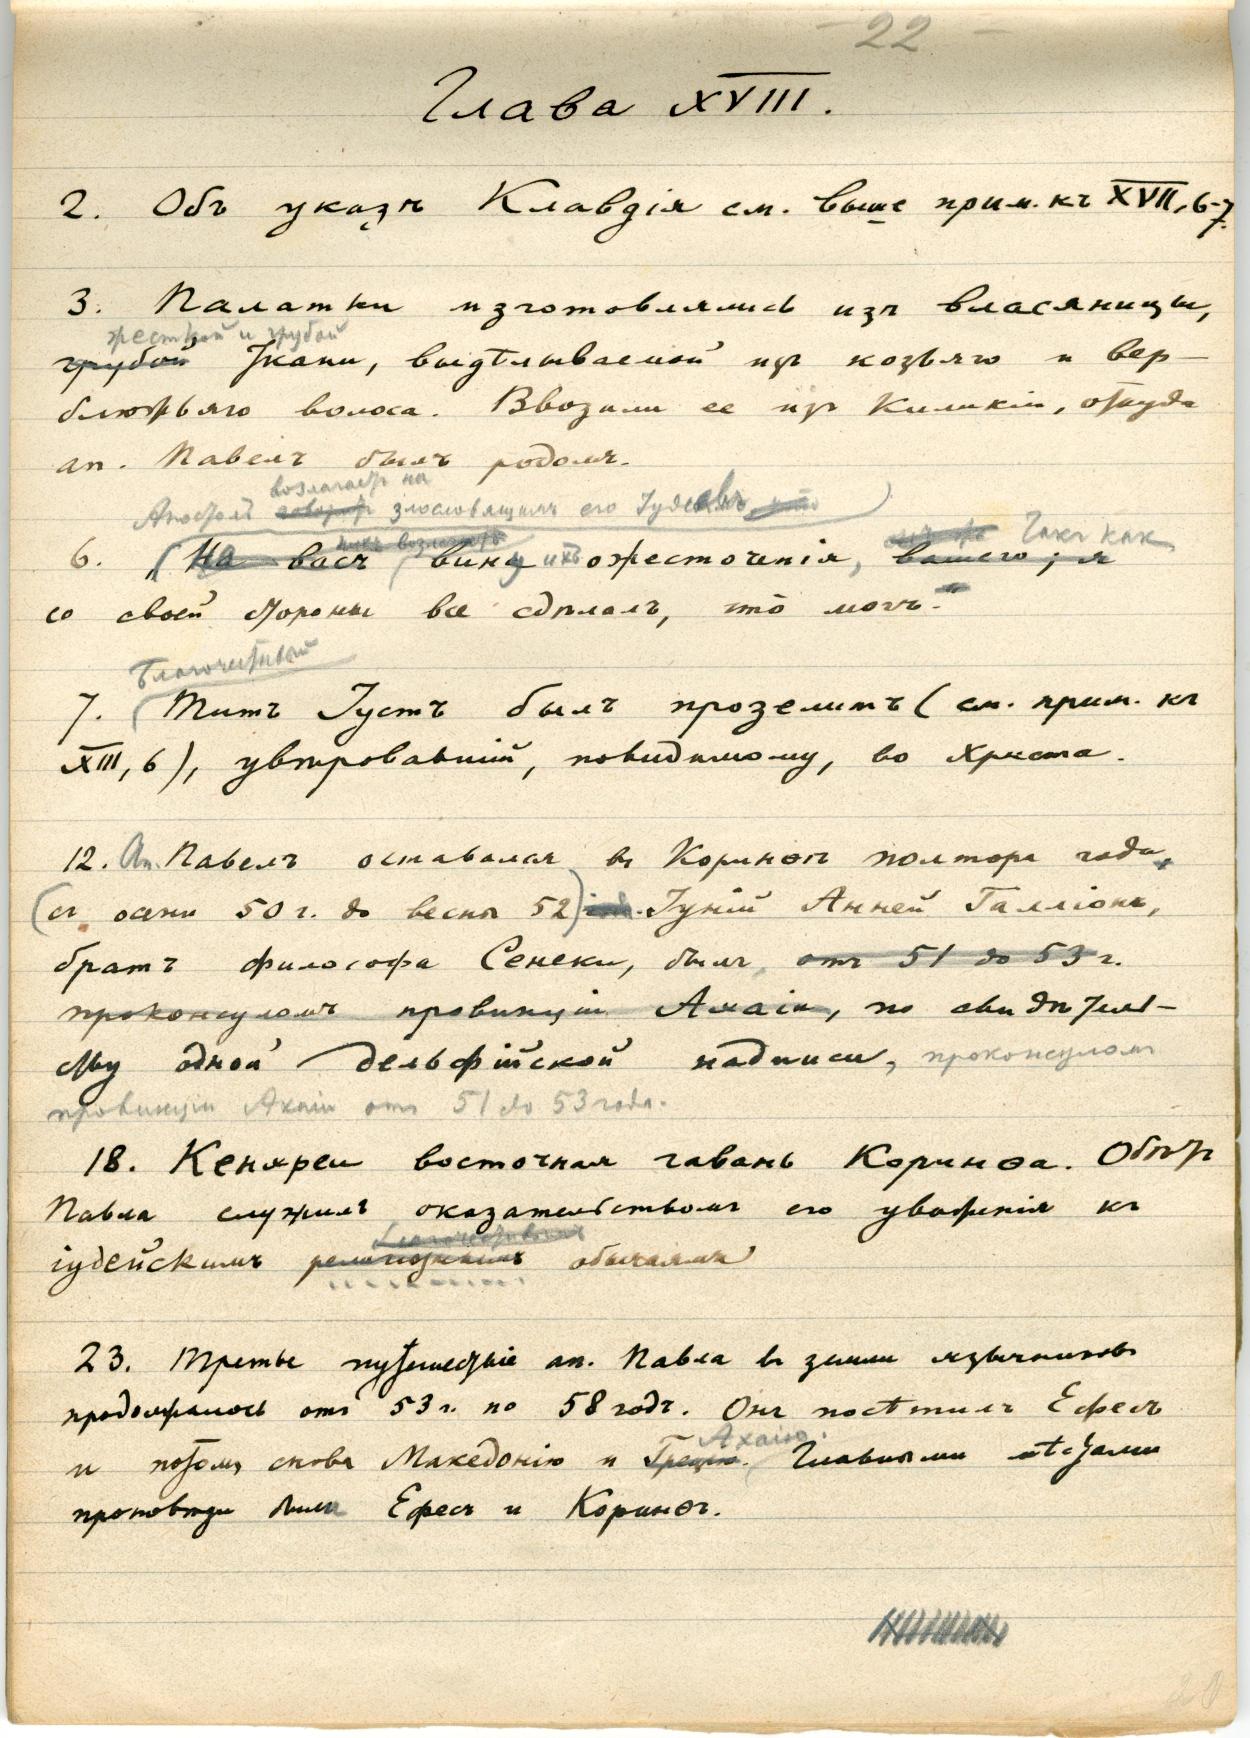 – 22 –
Глава XVIII.
2. Объ указѣ Клавдія см. выше прим. къ XVII, 6-7.
3. Палатки изготовлялись изъ власяницы,
жесткой и грубой
грубой ткани, выдѣлываемой изъ козьяго и вер-
блюжьяго волоса. Ввозили ее изъ Киликіи, откуда
ап. Павелъ былъ родомъ.
возлагаетъ на
Апостолъ говоритъ злословящихъ его Іудеевъ что
6. „На васъ вина ихъ ожесточенія, вашего; я такъ какъ
со своей стороны все сдѣлалъ, что могъ.“
Благочестивый
7. Титъ Іустъ былъ прозелитъ (см. прим. къ
XIII, 6), увѣровавшій, повидимому, во Христа.
12. Ап. Павелъ оставался въ Коринѳѣ полтора года,
(съ осени 50 г. до весны 52) Іуній Анней Галліонъ,
братъ философа Сенеки, былъ, отъ 51 до 53 г.
проконсуломъ провинціи Ахаіи, по свидѣтель-
ству одной дельфійской надписи, проконсуломъ
провинціи Ахаіи отъ 51 до 53 года.
18. Кенхреи восточная гавань Коринѳа. Обѣтъ
Павла служилъ доказательствомъ его уваженія къ
іудейскимъ религіознымъ обычаямъ
23. Третье путешествіе ап. Павла въ земли язычниковъ
продолжалось отъ 53 г. по 58 годъ. Онъ посѣтилъ Ефесъ
Ахаію.
и потомъ снова Македонію и Грецію. Главными мѣстами
проповѣди были Ефесъ и Коринѳъ.